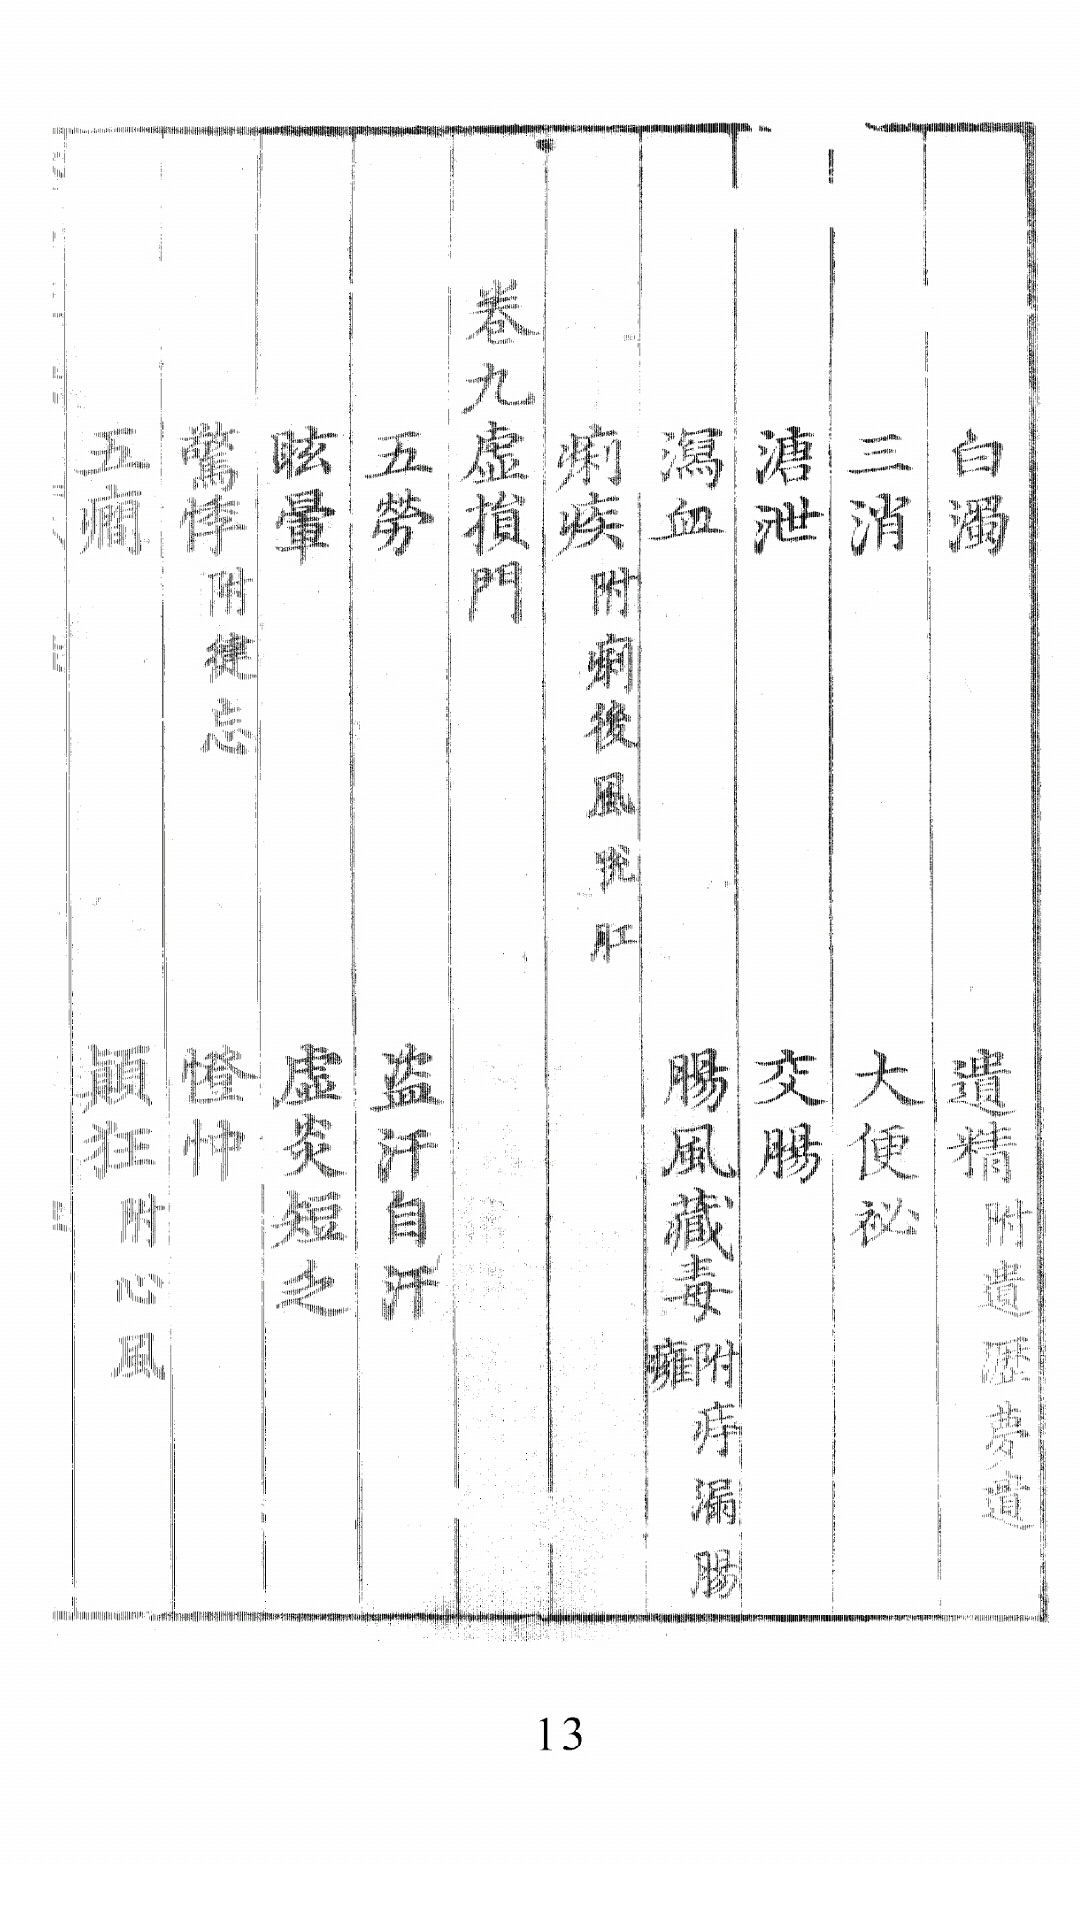 白濁 遺精附遺瀝夢遺
三消 大便祕
溏泄 交腸
瀉血 腸風藏毒附痔漏腸癰
痢疾附痢後風脫肛
卷九虛損門
五勞 盜汗自汗
眩暈 虛炎短乏
驚悸附健忘 怔忡
五癇 顛狂附心風
13